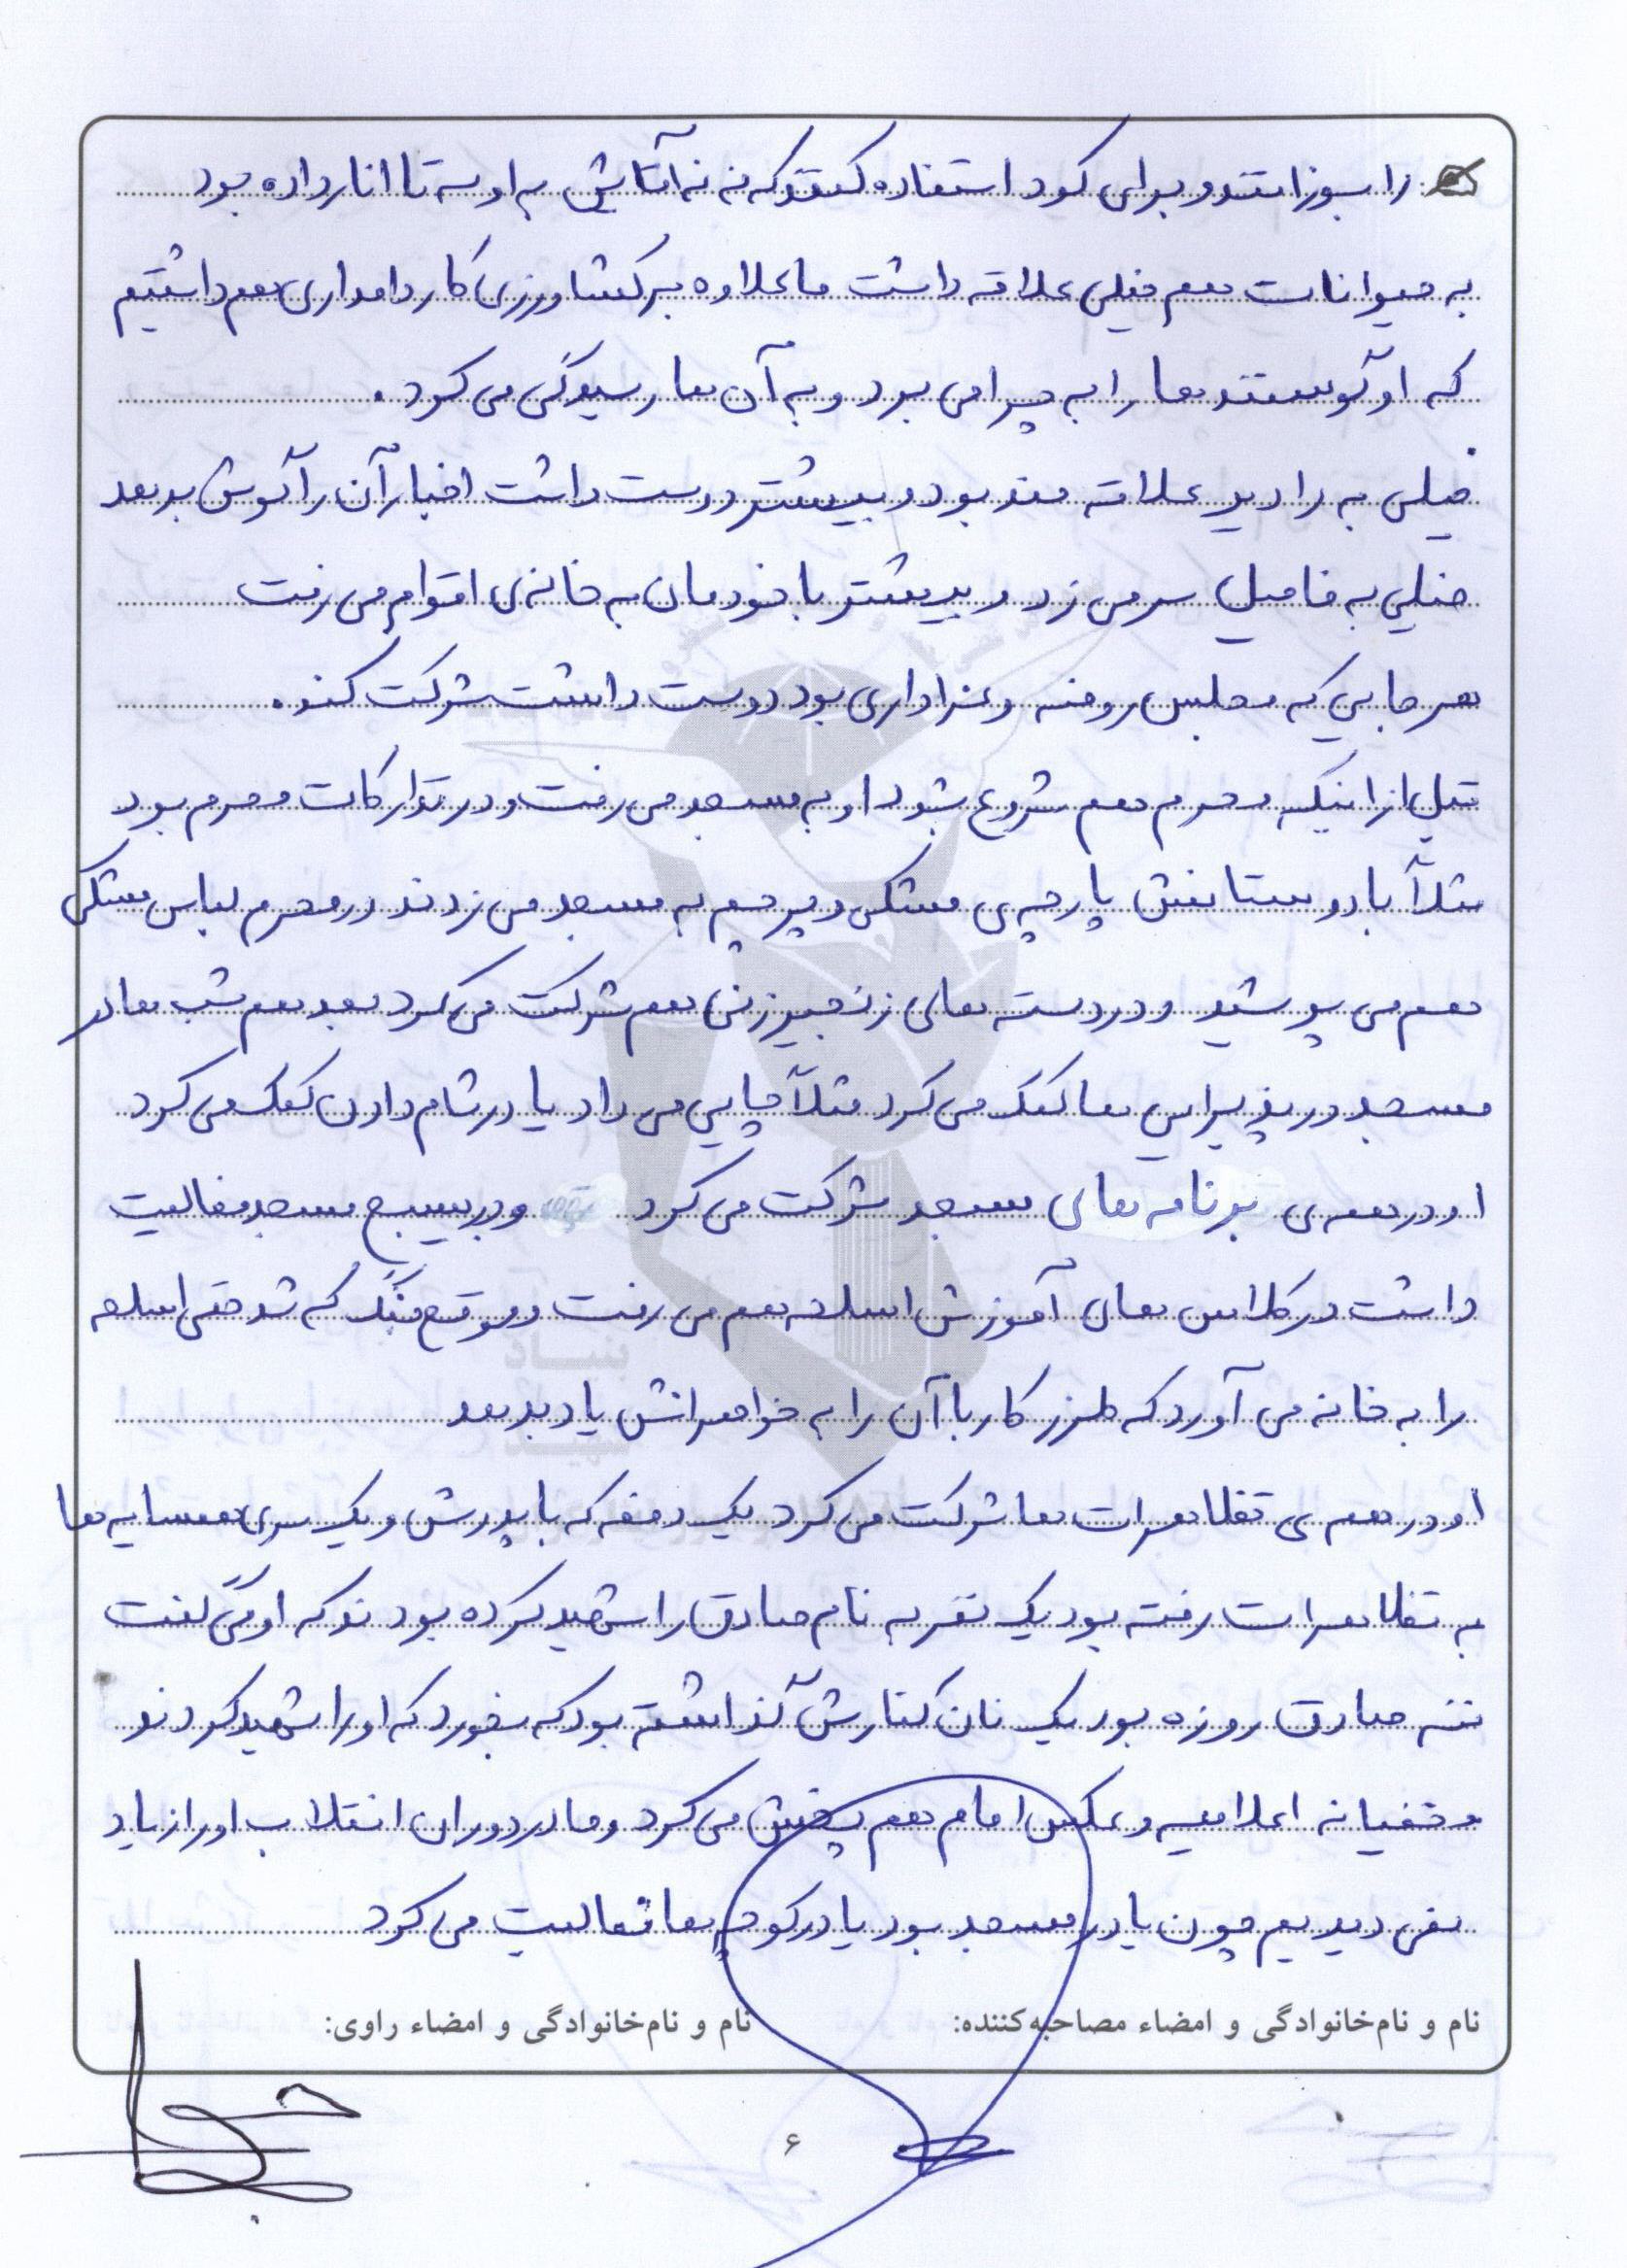 را بسوزانند و برای کود استفاده کنند که ننه آقایش به او سه تا انار داده بود
به حیوانات هم خیلی علاقه داشت ما علاوه بر کشاورزی کار دامداری هم داشتیم
که او گوسفندها را به چرا می برد و به آن ها رسیدگی می کرد.
خیلی به رادیو علاقه مند بود و بیشتر دوست داشت اخبار آن را گوش بدهد
خیلی به فامیل سر می زد و بیشتر با خودمان به خانه ی اقوام می رفت
هر جایی که مجلس روضه و عزاداری بود دوست داشت شرکت کند.
قبل از اینکه محرم هم شروع بشود او به مسجد می رفت و در تدارکات محرم بود
مثلاً با دوستانش پارچه ی مشکی و پرچم به مسجد می زدند در محرم لباس مشکی
هم می پوشید و در دسته های زنجیرزنی هم شرکت می کرد بعد هم شب ها در
مسجد در پذیرایی ها کمک می کرد مثلاً چایی می داد یا در شام دادن کمک می کرد
او در همه ی برنامه های مسجد شرکت می کرد و در بسیج مسجد فعالیت
داشت در کلاس های آموزش اسلحه هم می رفت و موقع جنگ که شد حتی اسلحه
را به خانه می آورد که طرز کار با آن را به خواهرانش یاد بدهد
او در همه ی تظاهرات ها شرکت می کرد یک دفعه که با پدرش و یک سری همسایه ها
به تظاهرات رفته بود یک نفر به نام صادق را شهید کرده بودند که او می گفت
ننه صادق روزه بود یک نان کنارش گذاشته بود که بخورد که او را شهید کردند
مخفیانه اعلامیه و عکس امام هم پخش می کرد و ما در دوران انقلاب او را زیاد
نمی دیدیم چون یا در مسجد بود یا در کوچه ها فعالیت می کرد
نام و نام‌خانوادگی و امضاء مصاحبه‌کننده: نام و نام‌خانوادگی و امضاء راوی:
۶